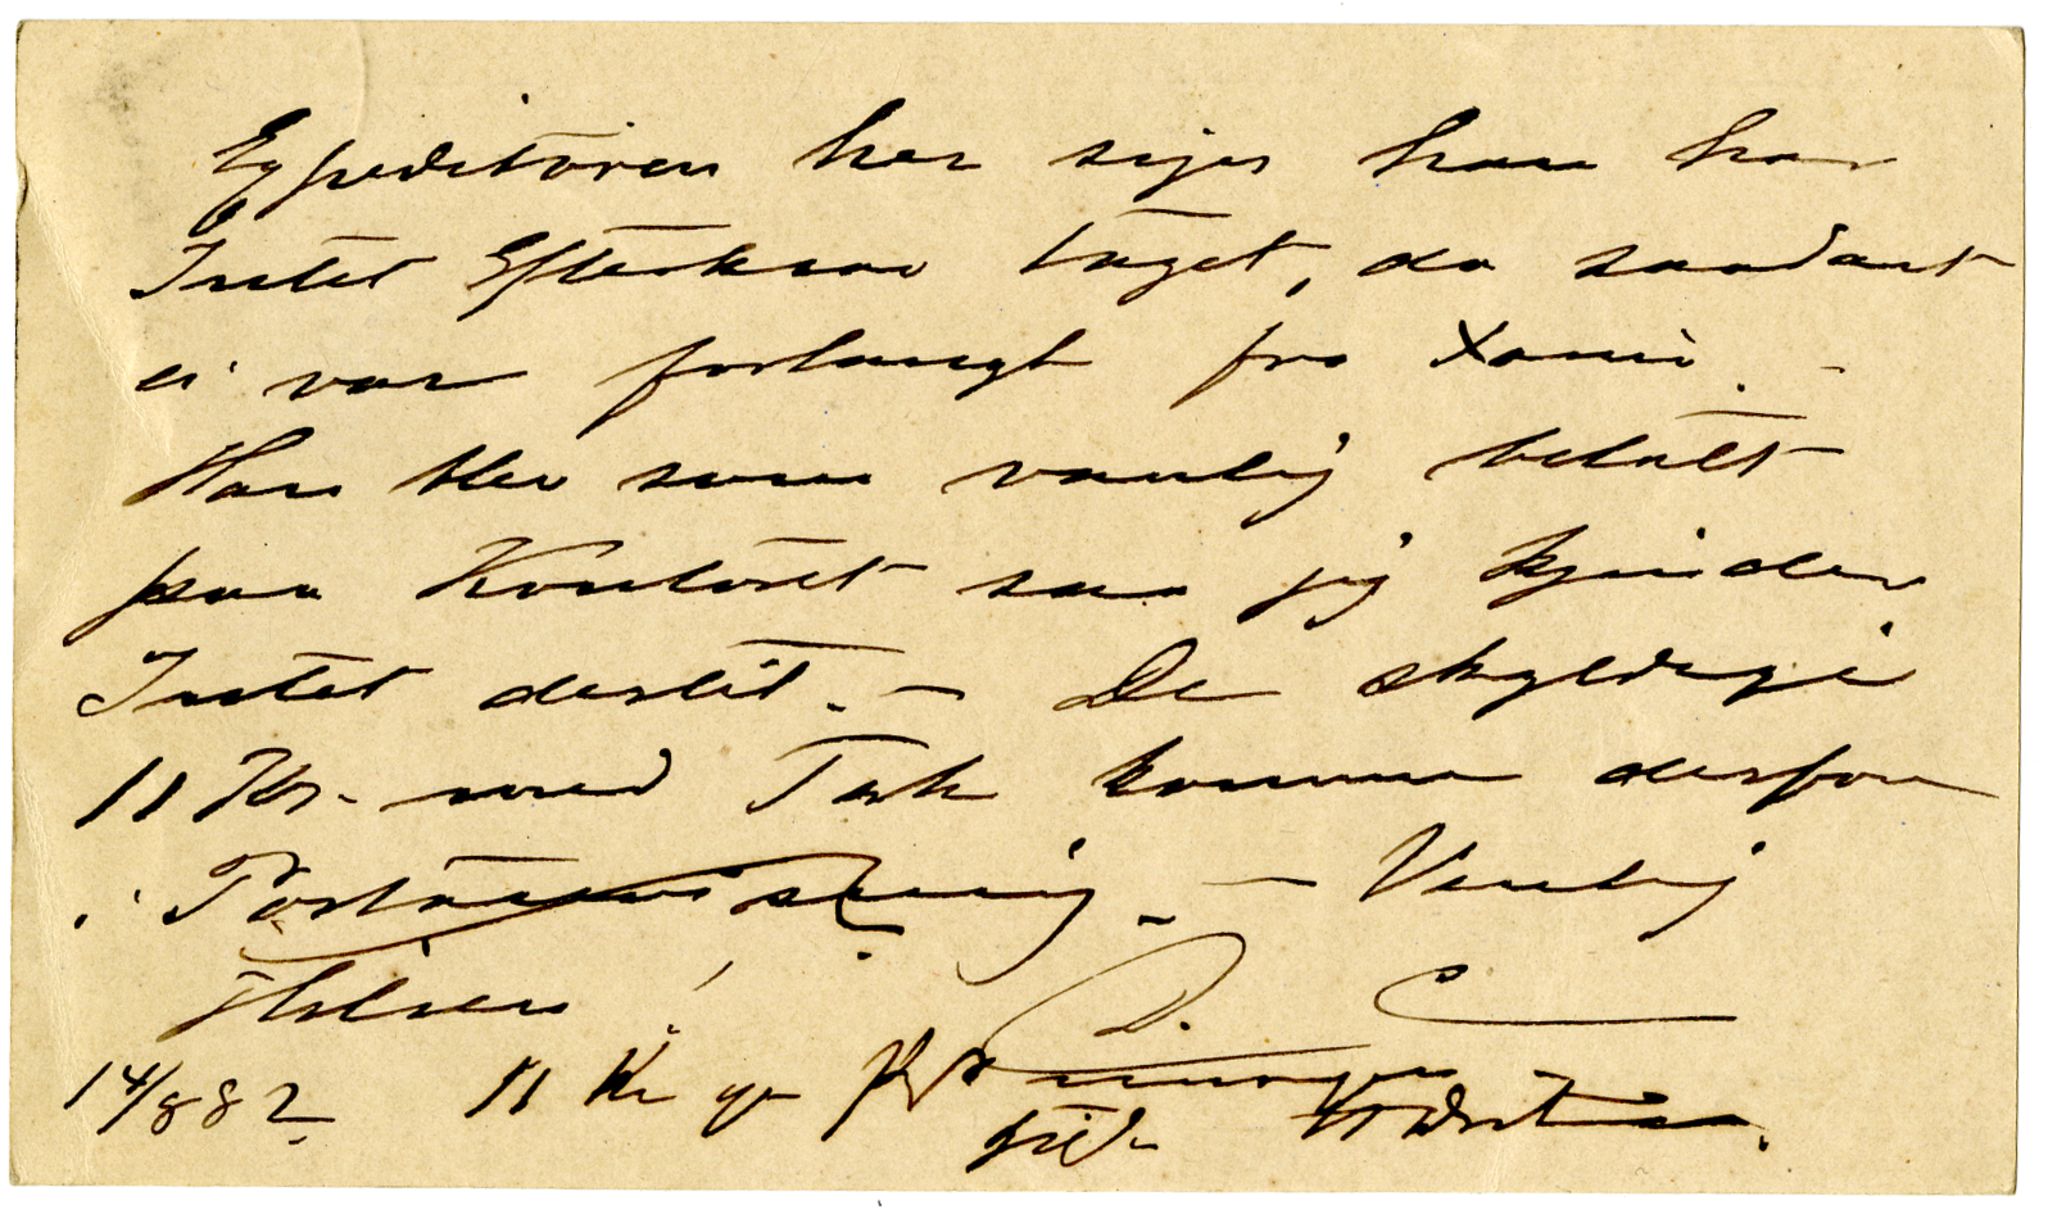 Expeditören her siger han har
Intet Efterkrav taget, da saadant
ei var forlangt fra Xania. -
Han blev som vanlig betalt
paa Kontoret saa jeg kjender
Intet dertil. - De skyldige
11 Kr. med Tak komme derfor
i Postanvisning - Venlig
Hilsen!
14/8 82 11 Kr